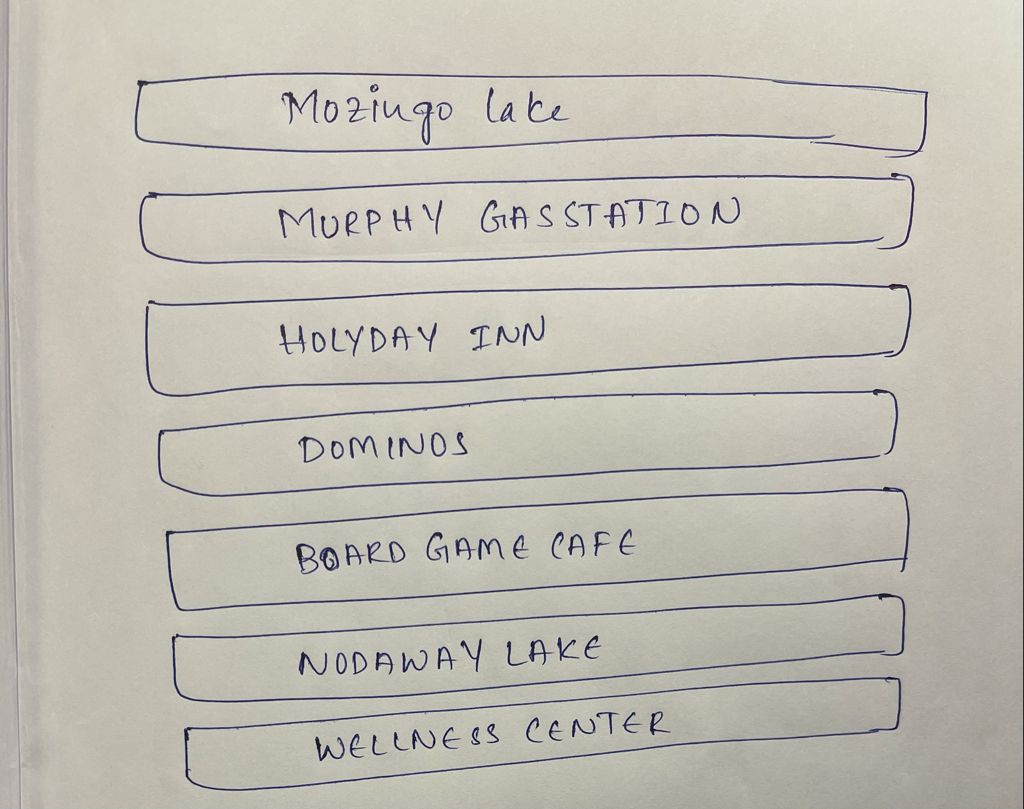 Mozingo lake
MURPHY GASSTATION
HOLYDAY INN
DOMINOS
BOARD GAME CAFE
NODAWAY LAKE
WELLNESS CENTER